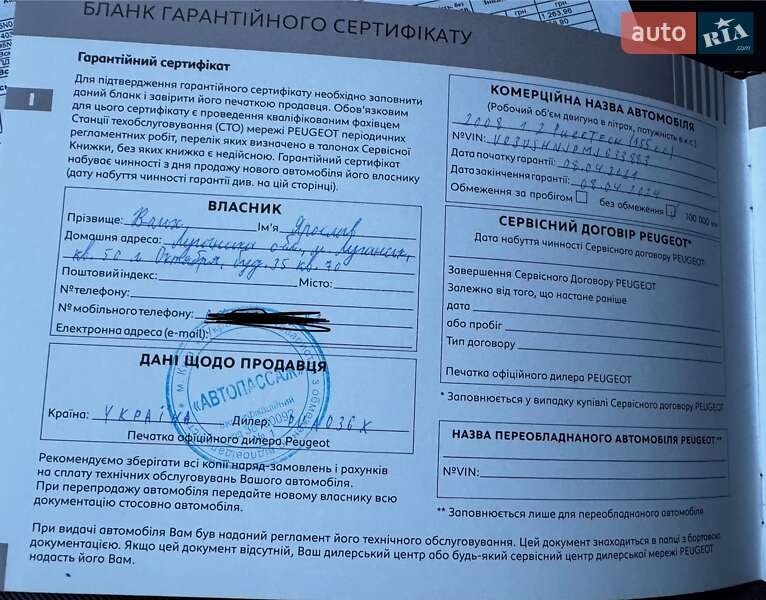 БЛАНК ГАРАНТІЙНОГО СЕРТИФІКАТУ
auto RIA .com
1 263,96
грн
I
Гарантійний сертифікат
Для підтвердження гарантійного сертифікату необхідно заповнити
даний бланк і завірити його печаткою продавця. Обов'язковим
для цього сертифікату є проведення кваліфікованим фахівцем
Станції техобслуговування (СТО) мережі PEUGEOT періодичних
регламентних робіт, перелік яких визначено в талонах Сервісної
Книжки, без яких книжка є недійсною. Гарантійний сертифікат
набуває чинності з дня продажу нового автомобіля його власнику
(дату набуття чинності гарантії див. на цій сторінці).
ВЛАСНИК
Прізвище: Ім'я Ярослав
Домашня адреса: Луганська обл, м. Луганськ,
кв. 50 л. Октября, буд. 35 кв. 70
Поштовий індекс: Місто:
№ телефону:
№ мобільного телефону:
Електронна адреса (e-mail):
ДАНІ ЩОДО ПРОДАВЦЯ
«АВТОПАССАЖ»
Країна: УКРАЇНА Дилер:
Печатка офіційного дилера Peugeot
Рекомендуємо зберігати всі копії наряд-замовлень і рахунків
на сплату технічних обслуговувань Вашого автомобіля.
При перепродажу автомобіля передайте новому власнику всю
документацію стосовно автомобіля.
КОМЕРЦІЙНА НАЗВА АВТОМОБІЛЯ
(Робочий об'єм двигуна в літрах, потужність в к.с.)
2008 1.2 PureTech (155 к.с.)
№VIN:
Дата початку гарантії: 08.04.2021
Дата закінчення гарантії: 08.04.2024
Обмеження за пробігом без обмеження 100 000 км
СЕРВІСНИЙ ДОГОВІР PEUGEOT*
Дата набуття чинності Сервісного договору PEUGEOT
Завершення Сервісного Договору PEUGEOT
Залежно від того, що настане раніше
дата
або пробіг
Тип договору
Печатка офіційного дилера PEUGEOT
* Заповнюється у випадку купівлі Сервісного договору PEUGEOT
НАЗВА ПЕРЕОБЛАДНАНОГО АВТОМОБІЛЯ PEUGEOT**
№VIN:
** Заповнюється лише для переобладнаного автомобіля
При видачі автомобіля Вам був наданий регламент його технічного обслуговування. Цей документ знаходиться в папці з бортовою
документацією. Якщо цей документ відсутній, Ваш дилерський центр або будь-який сервісний центр дилерської мережі PEUGEOT
надасть його Вам.